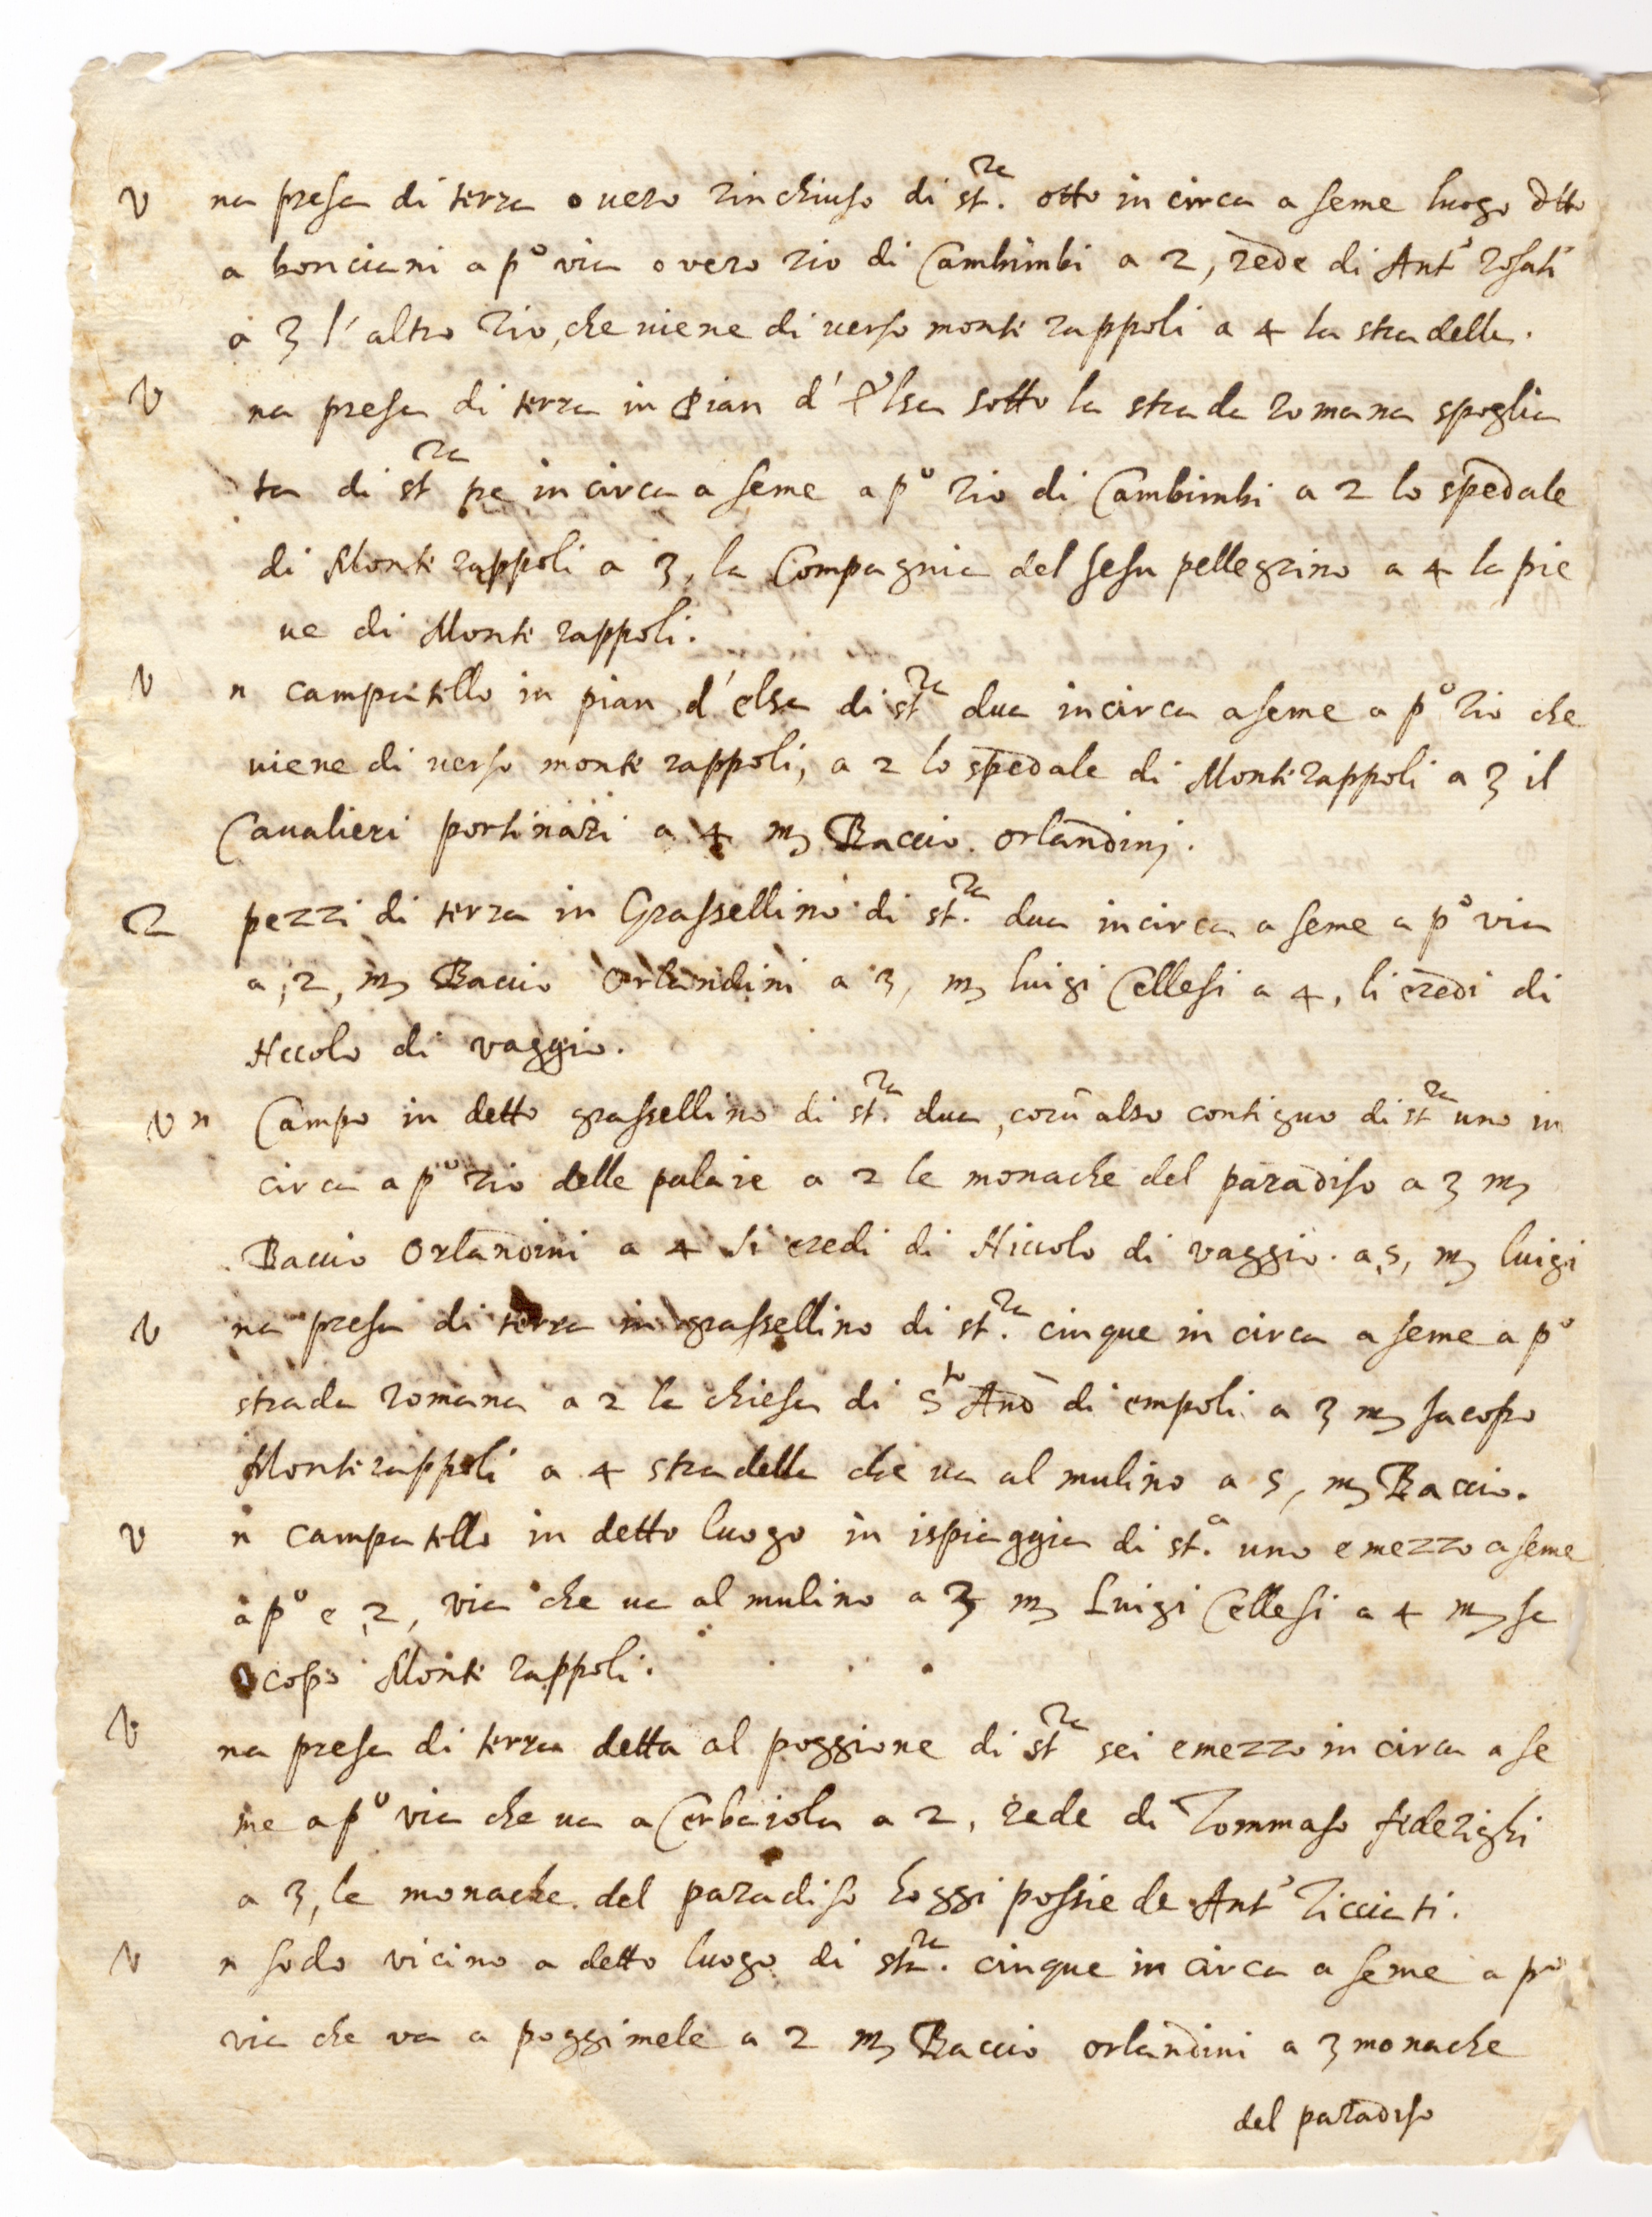 V na presa di terra overo rinchiuso di st.ra otto in circa a seme luogo dtto
a bonciani a pº via overo rio di Cambimbi a 2, rede di Antº rosati
a 3 l'altro rio, che viene di verso monte rappoli a 4 la stradella.
V na presa di terra in Pian d'Elsa sotto la strada romana spoglia
ta di st ra tre in circa a seme a pº rio di Cambimbi a 2 lo spedale
di Monte rappoli a 3, la Compagnia del Jesu pellegrino a 4 la pie
ue di Monte rappoli.
V n campatello in pian d'elsa di st ra dua in circa a seme a pº rio che
uiene di uerso monte rappoli, a 2 lo spedale di Monterappoli a 3 il
Caualieri portinari a 4 m Baccio orlandinj.
2 pezzi di terra in Grassellino di st.ra dua in circa a seme a pº via
a, 2, m Baccio Orlandini a 3, m luigi Cellesi a 4, li eredi di
Niccolo di vaggio.
V n Campo in detto grassellino di st.ra dua, con altro contiguo di st ra uno in
circa a pº rio delle palaie a 2 le monache del paradiso a 3 m
Baccio Orlandini a 4 li eredi di Niccolo di vaggio. a 5, m luigi
V na presa di terra in grassellino di st.ra cinque in circa a seme a pº
strada romana a 2 la chiesa di Sto And di empoli a 3 m Jacopo
Monterappoli a 4 stradella che ua al mulino a 5, m Baccio.
V n campatello in detto luogo in ispiaggia di st.a uno e mezzo a seme
a pº e 2, via che ua al mulino a 3 m Luigi Cellesi a 4 m Ja
copo Monte rappoli.
V na presa di terra detta al poggione di st ra sei e mezzo in circa a se
me a pº via che ua a Cerbaiola a 2, rede di Tommaso federighi
a 3, le monache del paradiso hoggi possiede Antº Ricciati.
V n sodo vicino a detto luogo di sta.ra cinque in circa a seme a pº
via che va a poggimele a 2 m Baccio orlandini a 3 monache
del paradiso